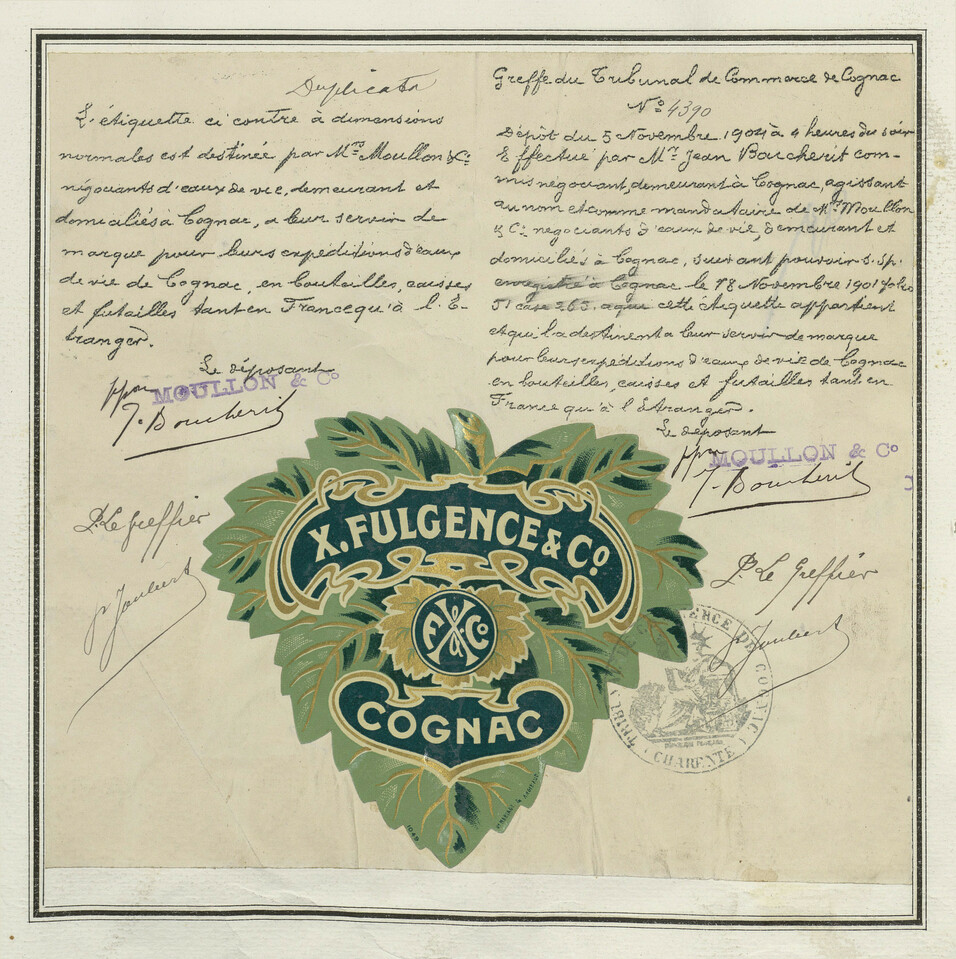 Duplicata
L'étiquette ci contre à dimensions
normales est destinée par Mrs Moullon & Co
négociants d'eaux de vie, demeurant et
domiciliés à Cognac, a leur servir de
marque pour leurs expéditions d'eaux
de vie de Cognac, en bouteilles, caisses
et futailles tant en France qu'à l'É-
tranger.
Le déposant
ppon MOULLON & Co
J. Boucherit
P. Le Greffier
Joubert
Greffe du Tribunal de Commerce de Cognac
No 4390
Dépôt du 5 Novembre 1904 à 4 heures du soir
Effectué par Mr Jean Boucherit com-
mis négociant, demeurant à Cognac, agissant
au nom et comme mandataire de Mrs Moullon
& Co négociants d'eaux de vie, demeurant et
domiciliés à Cognac, suivant pouvoir s. sp.
enregistré à Cognac le 18 Novembre 1901 folio
51 case 265. a que cette étiquette appartient
et qu'il a destinent a leur servir de marque
pour leurs expéditions d'eaux de vie de Cognac
en bouteilles, caisses et futailles tant en
France qu'à l'Etranger.
Le déposant
ppon MOULLON & Co
J. Boucherit
P. Le Greffier
Joubert
X. FULGENCE & Co
F & Co
COGNAC
1049
COMMERCE DE COGNAC
CHARENTE